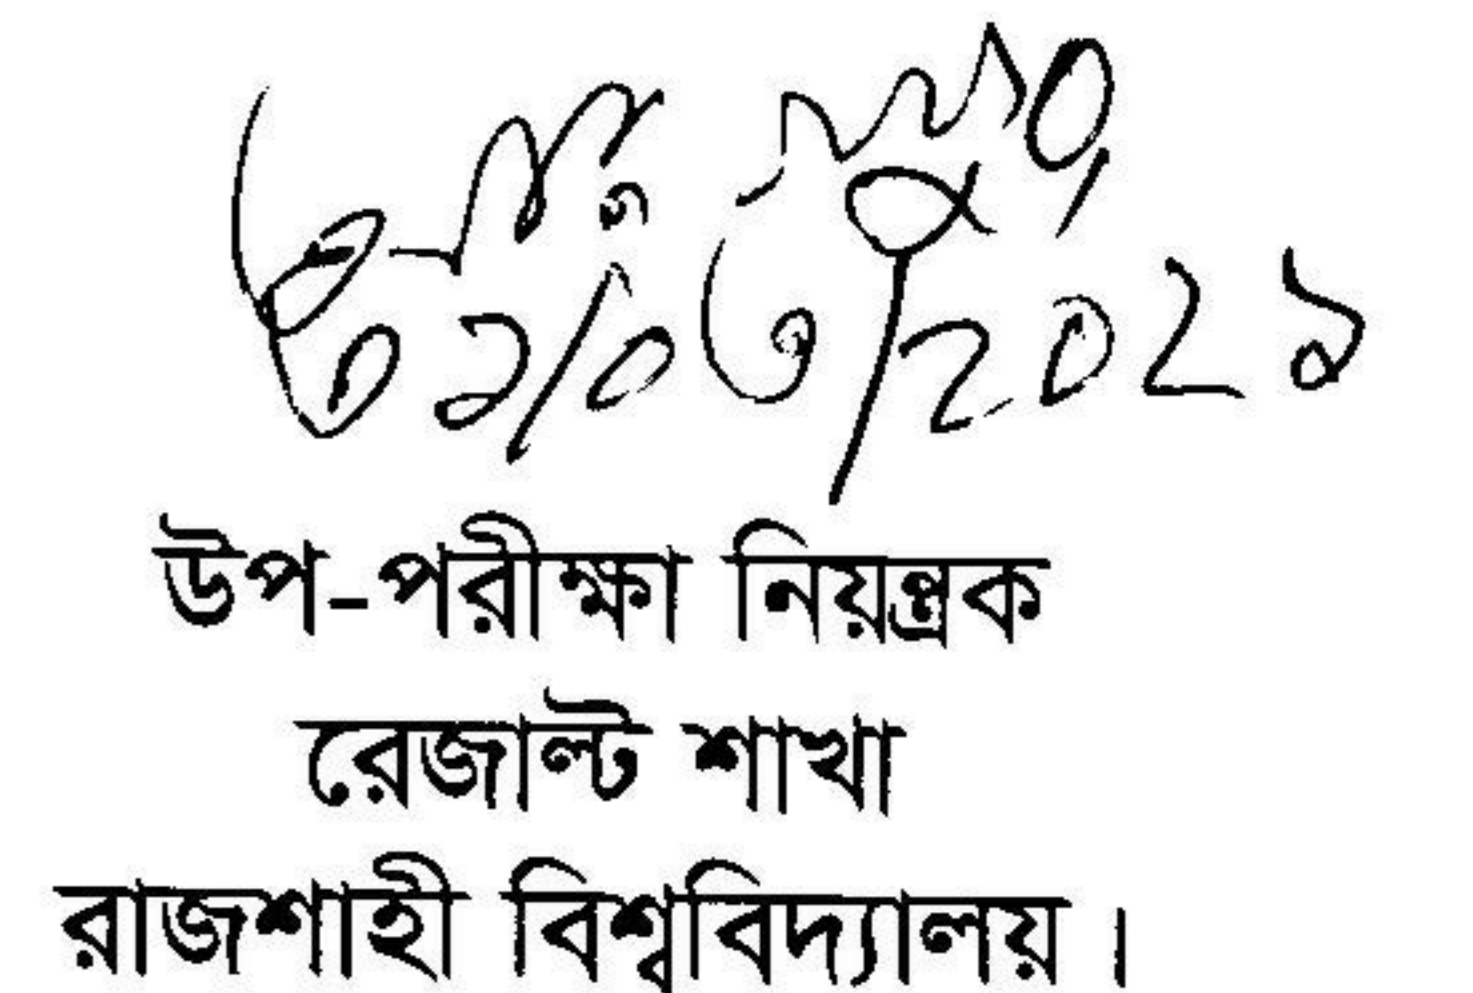 ৩১/০৩/২০২১
উপ-পরীক্ষা নিয়ন্ত্রক
রেজাল্ট শাখা
রাজশাহী বিশ্ববিদ্যালয়।